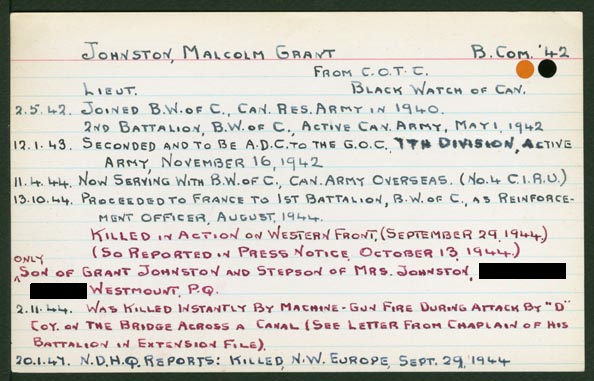 JOHNSTON, MALCOLM GRANT B. COM. '42
FROM C.O.T.C.
LIEUT. BLACK WATCH OF CAN.
2.5.42. JOINED B.W. OF C., CAN. RES. ARMY IN 1940.
2ND BATTALION, B.W. OF C., ACTIVE CAN. ARMY, MAY 1, 1942
12.1.43. SECONDED AND TO BE A.D.C. TO THE G.O.C. 7TH DIVISION, ACTIVE
ARMY, NOVEMBER 16, 1942
11.4.44. NOW SERVING WITH B.W. OF C., CAN. ARMY OVERSEAS. (NO. 4 C.I.R.U.)
13.10.44. PROCEEDED TO FRANCE TO 1ST BATTALION, B.W. OF C., AS REINFORCE-
MENT OFFICER, AUGUST, 1944.
KILLED IN ACTION ON WESTERN FRONT, (SEPTEMBER 29, 1944.)
(SO REPORTED IN PRESS NOTICE, OCTOBER 13, 1944.)
ONLY
^SON OF GRANT JOHNSTON AND STEPSON OF MRS. JOHNSTON,
WESTMOUNT, P.Q.
2.11.44. WAS KILLED INSTANTLY BY MACHINE-GUN FIRE DURING ATTACK BY "D"
COY. ON THE BRIDGE ACROSS A CANAL (SEE LETTER FROM CHAPLAIN OF HIS
BATTALION IN EXTENSION FILE).
20.1.47. N.D.H.Q. REPORTS: KILLED, N.W. EUROPE, SEPT. 29, 1944